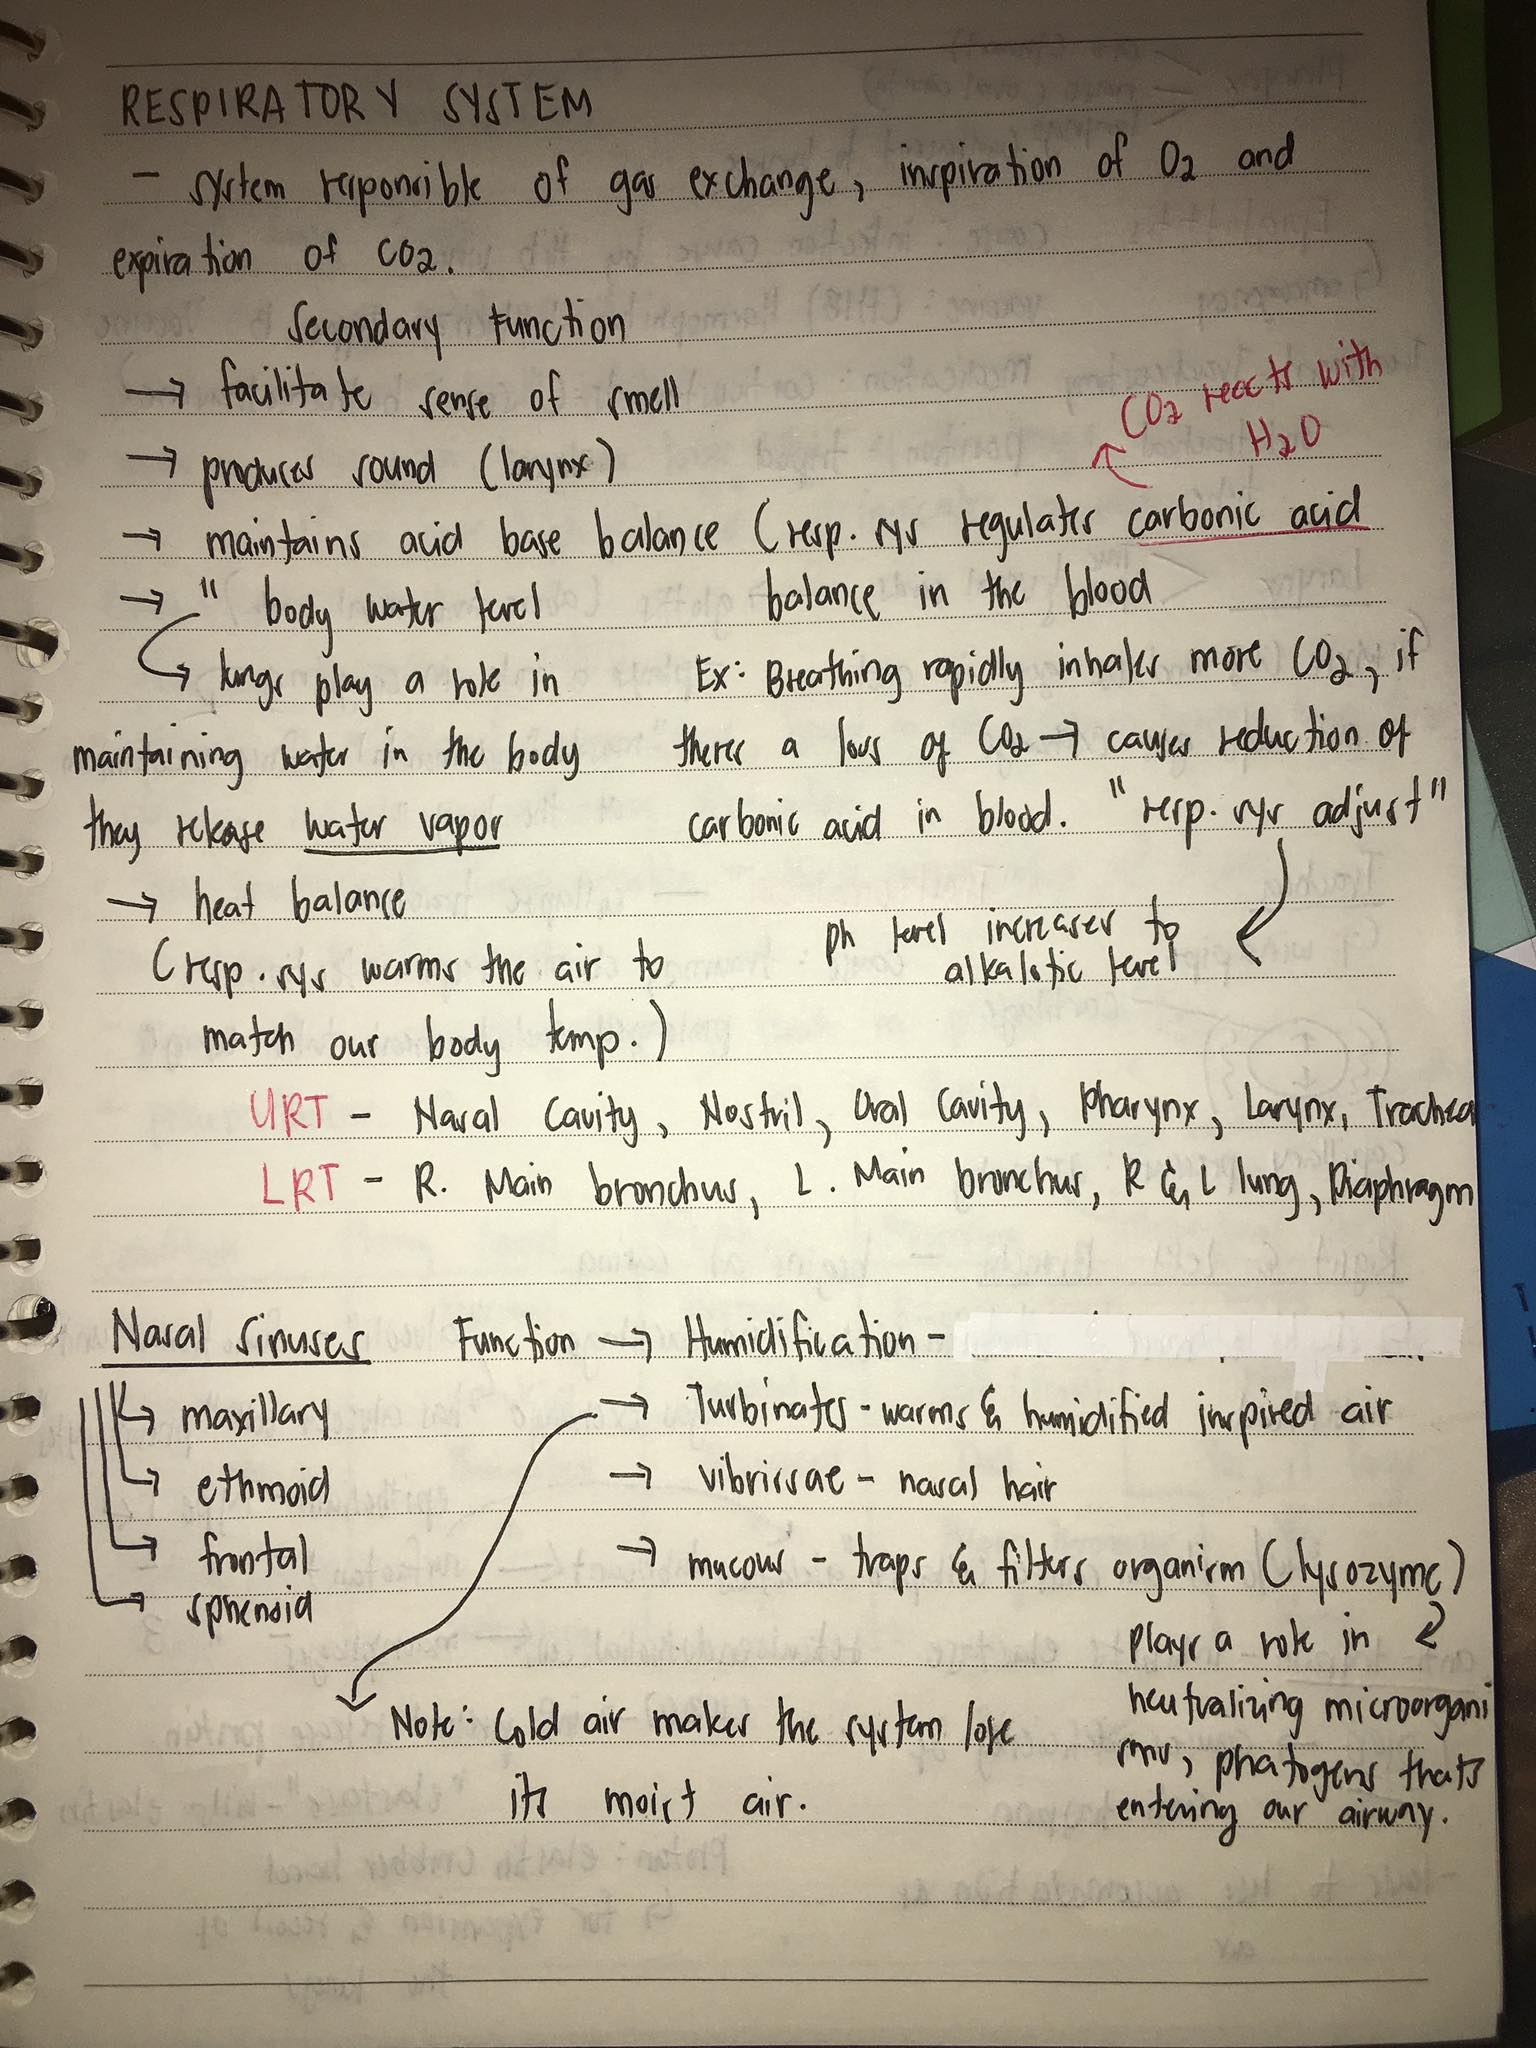 RESPIRATORY SYSTEM
- system responsible of gas exchange, inspiration of O2 and
expiration of CO2.
Secondary Function
→ facilitate sense of smell
→ produces sound (larynx)
CO2 reacts with
H2O
→ maintains acid base balance (resp. sys regulates carbonic acid
balance in the blood
→ " body water level
↳ lungs play a role in
maintaining water in the body
they release water vapor
Ex: Breathing rapidly inhales more CO2, if
theres a loss of CO2 → causes reduction of
carbonic acid in blood. "resp. sys adjust"
ph level increases to
alkalotic level
→ heat balance
(resp. sys warms the air to
match our body temp.)
URT - Nasal Cavity, Nostril, Oral Cavity, Pharynx, Larynx, Trachea
LRT - R. Main bronchus, L. Main bronchus, R & L lung, Diaphragm
Nasal Sinuses
→ maxillary
→ ethmoid
→ frontal
→ sphenoid
Function → Humidification -
→ Turbinates - warms & humidified inspired air
→ vibrissae - nasal hair
→ mucous - traps & filters organism (lysozyme)
plays a role in
neutralizing microorgani
sms, phatogens thats
entering our airway.
Note: Cold air makes the system lose
its moist air.